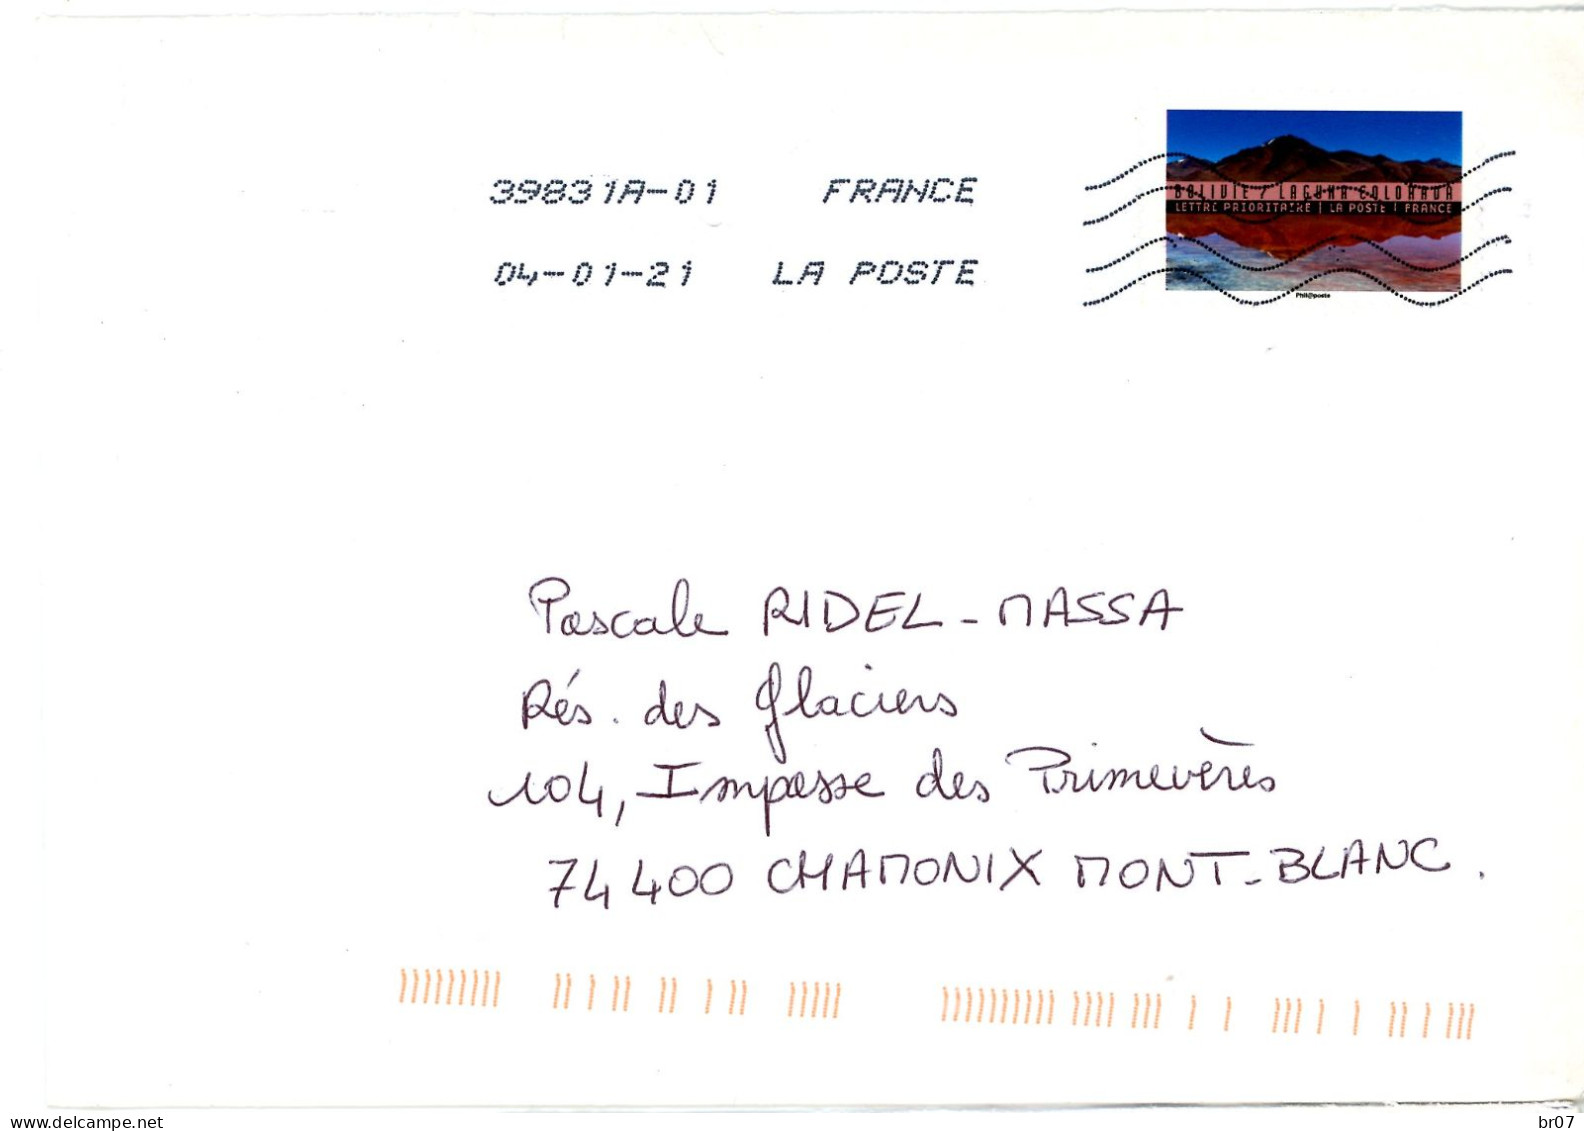 39831A-01 FRANCE
04-01-21 LA POSTE
BOLIVIE / LAGUNA COLORADA
LETTRE PRIORITAIRE | LA POSTE | FRANCE
Phil@poste
Pascale RIDEL-MASSA
Rés. des Glaciers
104, Impasse des Primevères
74400 CHAMONIX MONT-BLANC.
www.delcampe.net
br07